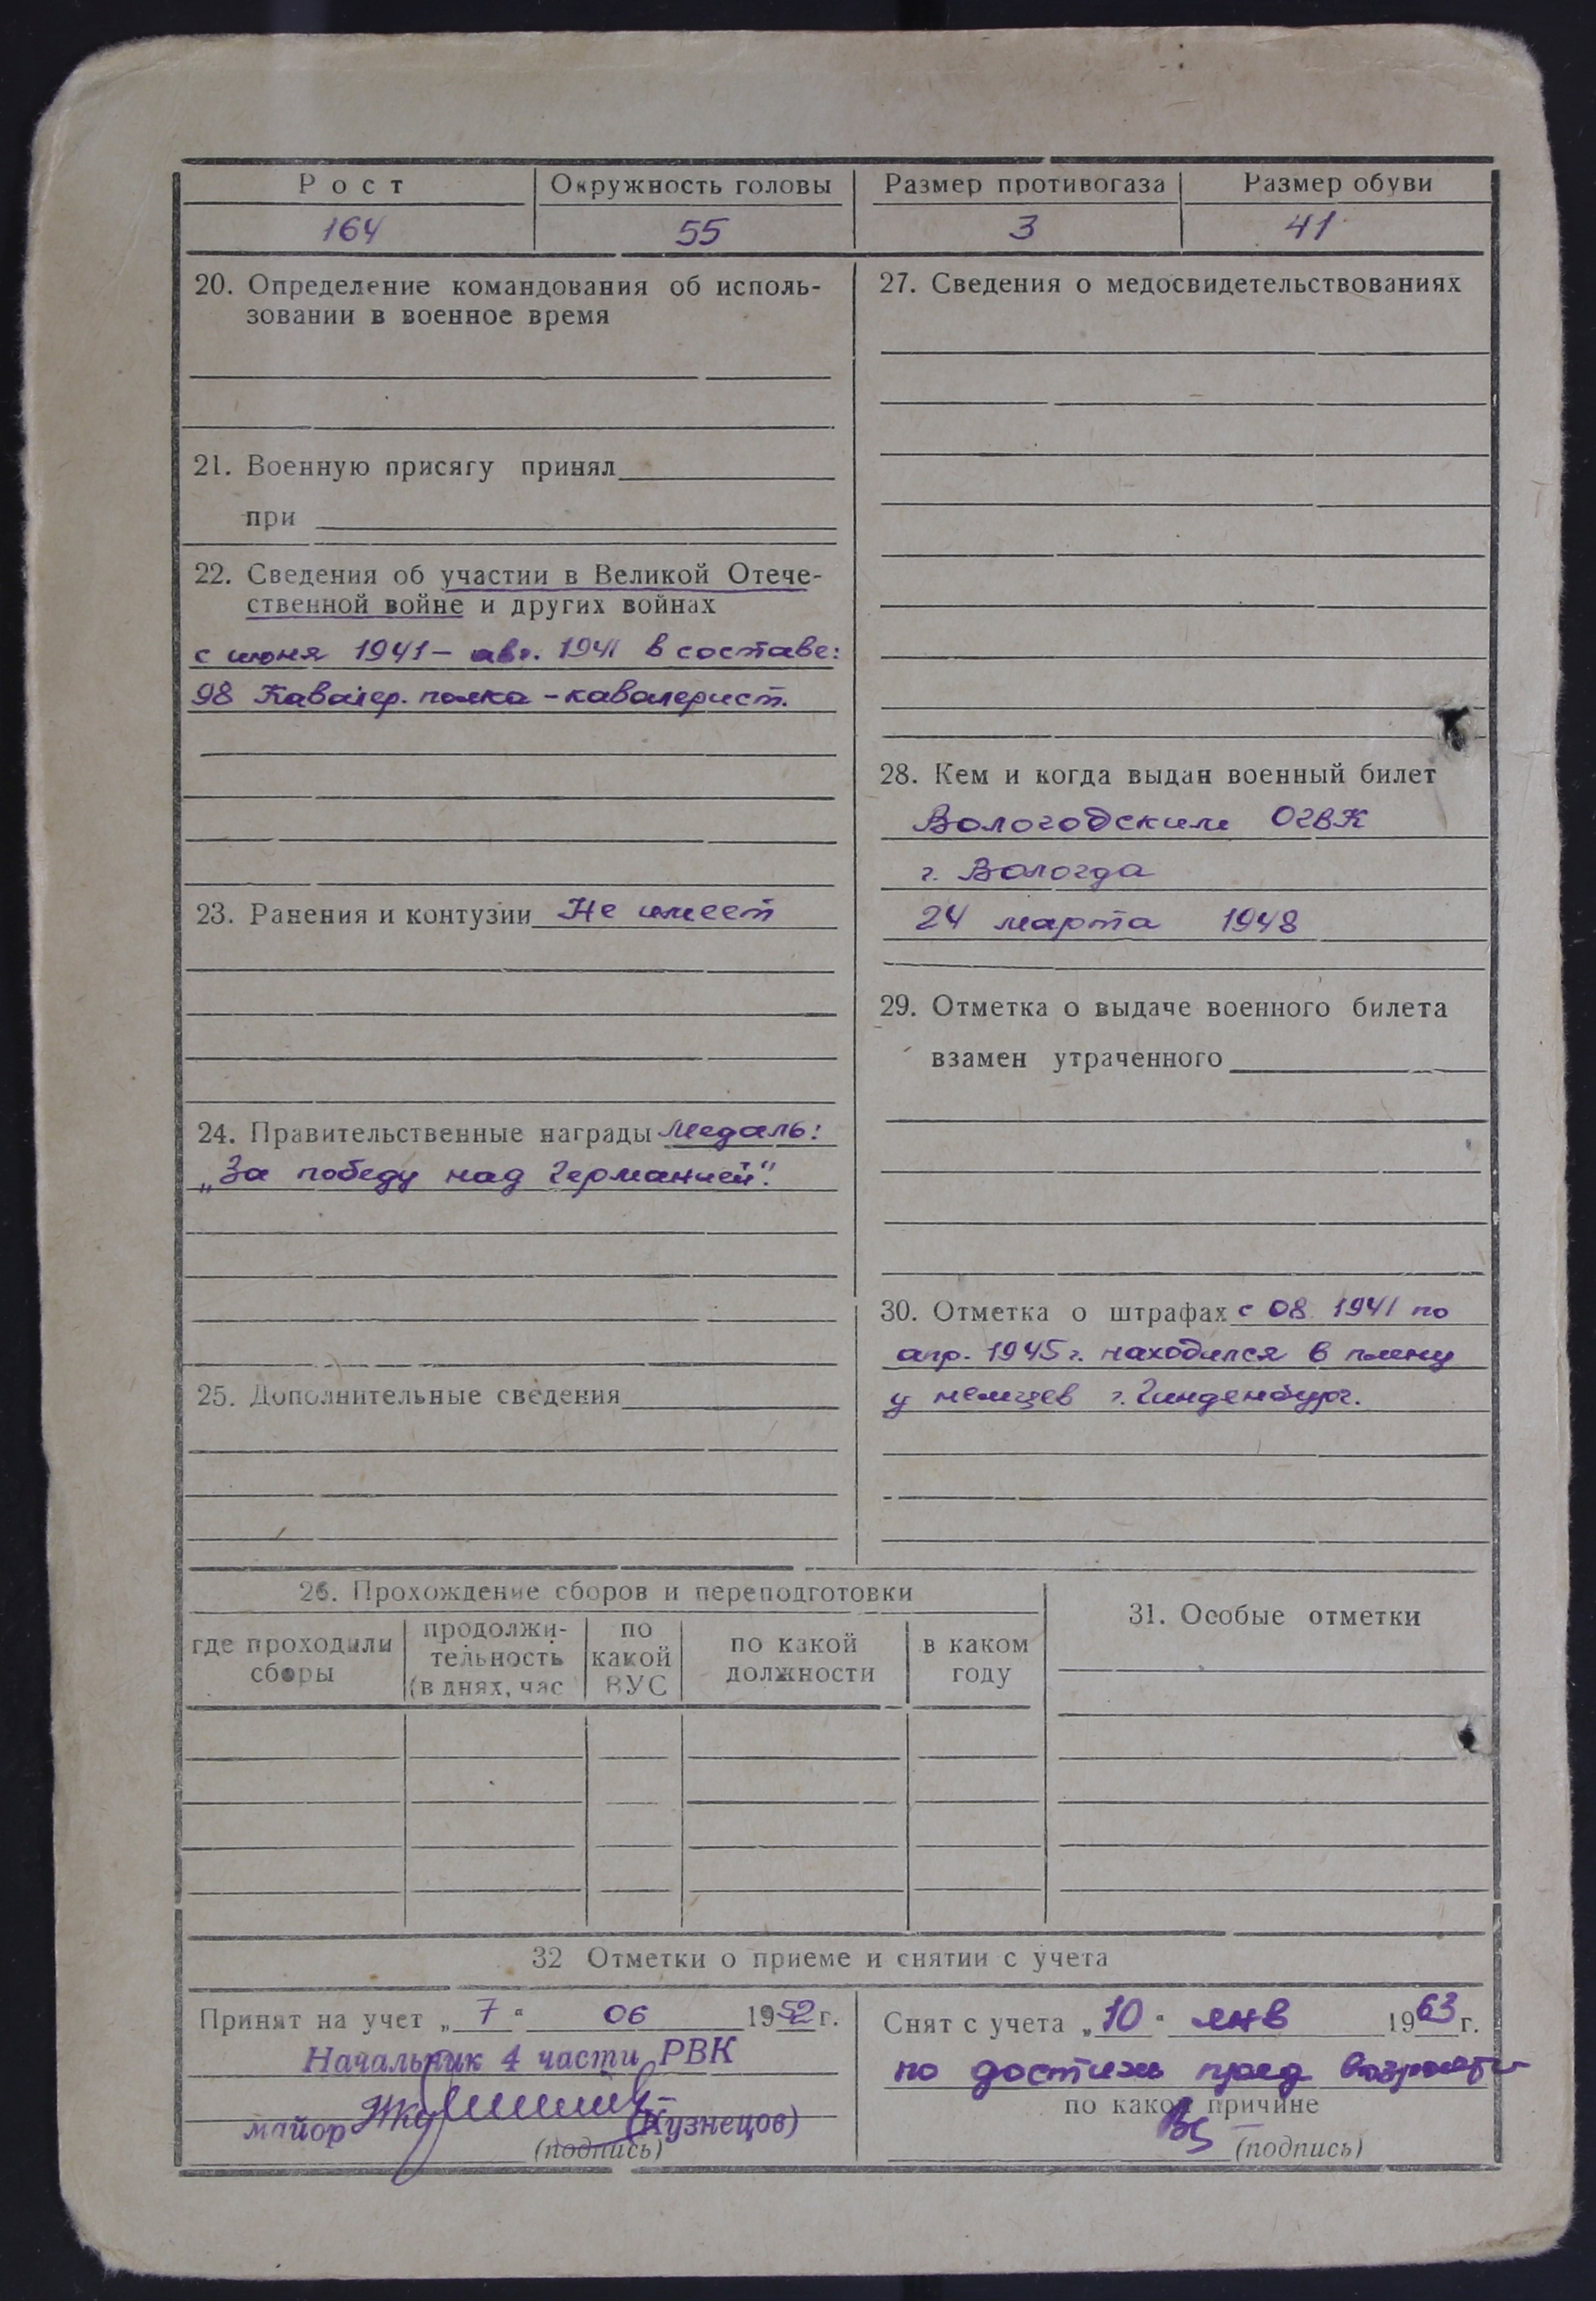 Рост
Окружность головы
Размер противогаза
Размер обуви
164
55
3
41
20. Определение командования об исполь-
зовании в военное время
21. Военную присягу принял
при
22. Сведения об участии в Великой Отече-
ственной войне и других войнах
с июня 1941 – авг. 1941 в составе:
98 Кавалер. полка – кавалерист.
23. Ранения и контузии Не имеет
24. Правительственные награды Медаль:
„За победу над Германией".
25. Дополнительные сведения
27. Сведения о медосвидетельствованиях
28. Кем и когда выдан военный билет
Вологодским ОГВК
г. Вологда
24 марта 1948
29. Отметка о выдаче военного билета
взамен утраченного
30. Отметка о штрафах с 08 1941 по
апр. 1945 г. находился в плену
у немцев г. Гинденбург.
26. Прохождение сборов и переподготовки
где проходили сборы
продолжи-
тельность
(в днях, час
по
какой
ВУС
по какой
должности
в каком
году
31. Особые отметки
32 Отметки о приеме и снятии с учета
Принят на учет „7" 06 1952 г.
Начальник 4 части РВК
майор (Кузнецов)
(подпись)
Снят с учета „10" янв 1963 г.
по достиж пред возраста
по какой причине
(подпись)